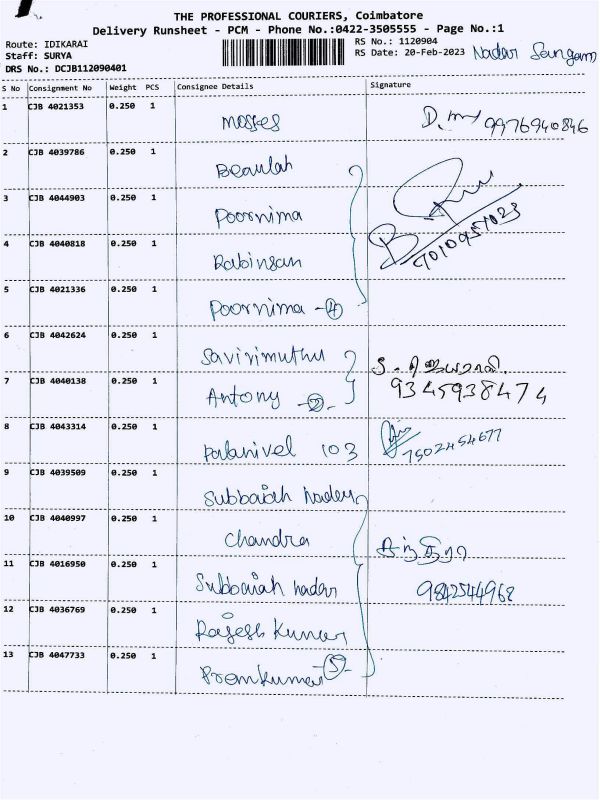 THE PROFESSIONAL COURIERS, Coimbatore
Delivery Runsheet - PCM - Phone No.:0422-3505555 - Page No.:1
Route: IDIKARAI RS No.: 1120904
Staff: SURYA RS Date: 20-Feb-2023 Nadar Sangam
DRS No.: DCJB112090401
S No Consignment No Weight PCS Consignee Details Signature
1 CJB 4021353 0.250 1 mosses 9976940846
2 CJB 4039786 0.250 1 Beaulah
3 CJB 4044903 0.250 1 Poornima
4 CJB 4040818 0.250 1 Rabinsan 9010957023
5 CJB 4021336 0.250 1 Poornima -4
6 CJB 4042624 0.250 1 Savirimuthu
7 CJB 4040138 0.250 1 Antony -2 9345938474
8 CJB 4043314 0.250 1 Palanivel 103 7502454677
9 CJB 4039509 0.250 1 Subbaiah nader
10 CJB 4040997 0.250 1 Chandra சந்திரா
11 CJB 4016950 0.250 1 Subbaiah nadar 9842544968
12 CJB 4036769 0.250 1 Rajesh Kumar
13 CJB 4047733 0.250 1 Premkumar -5